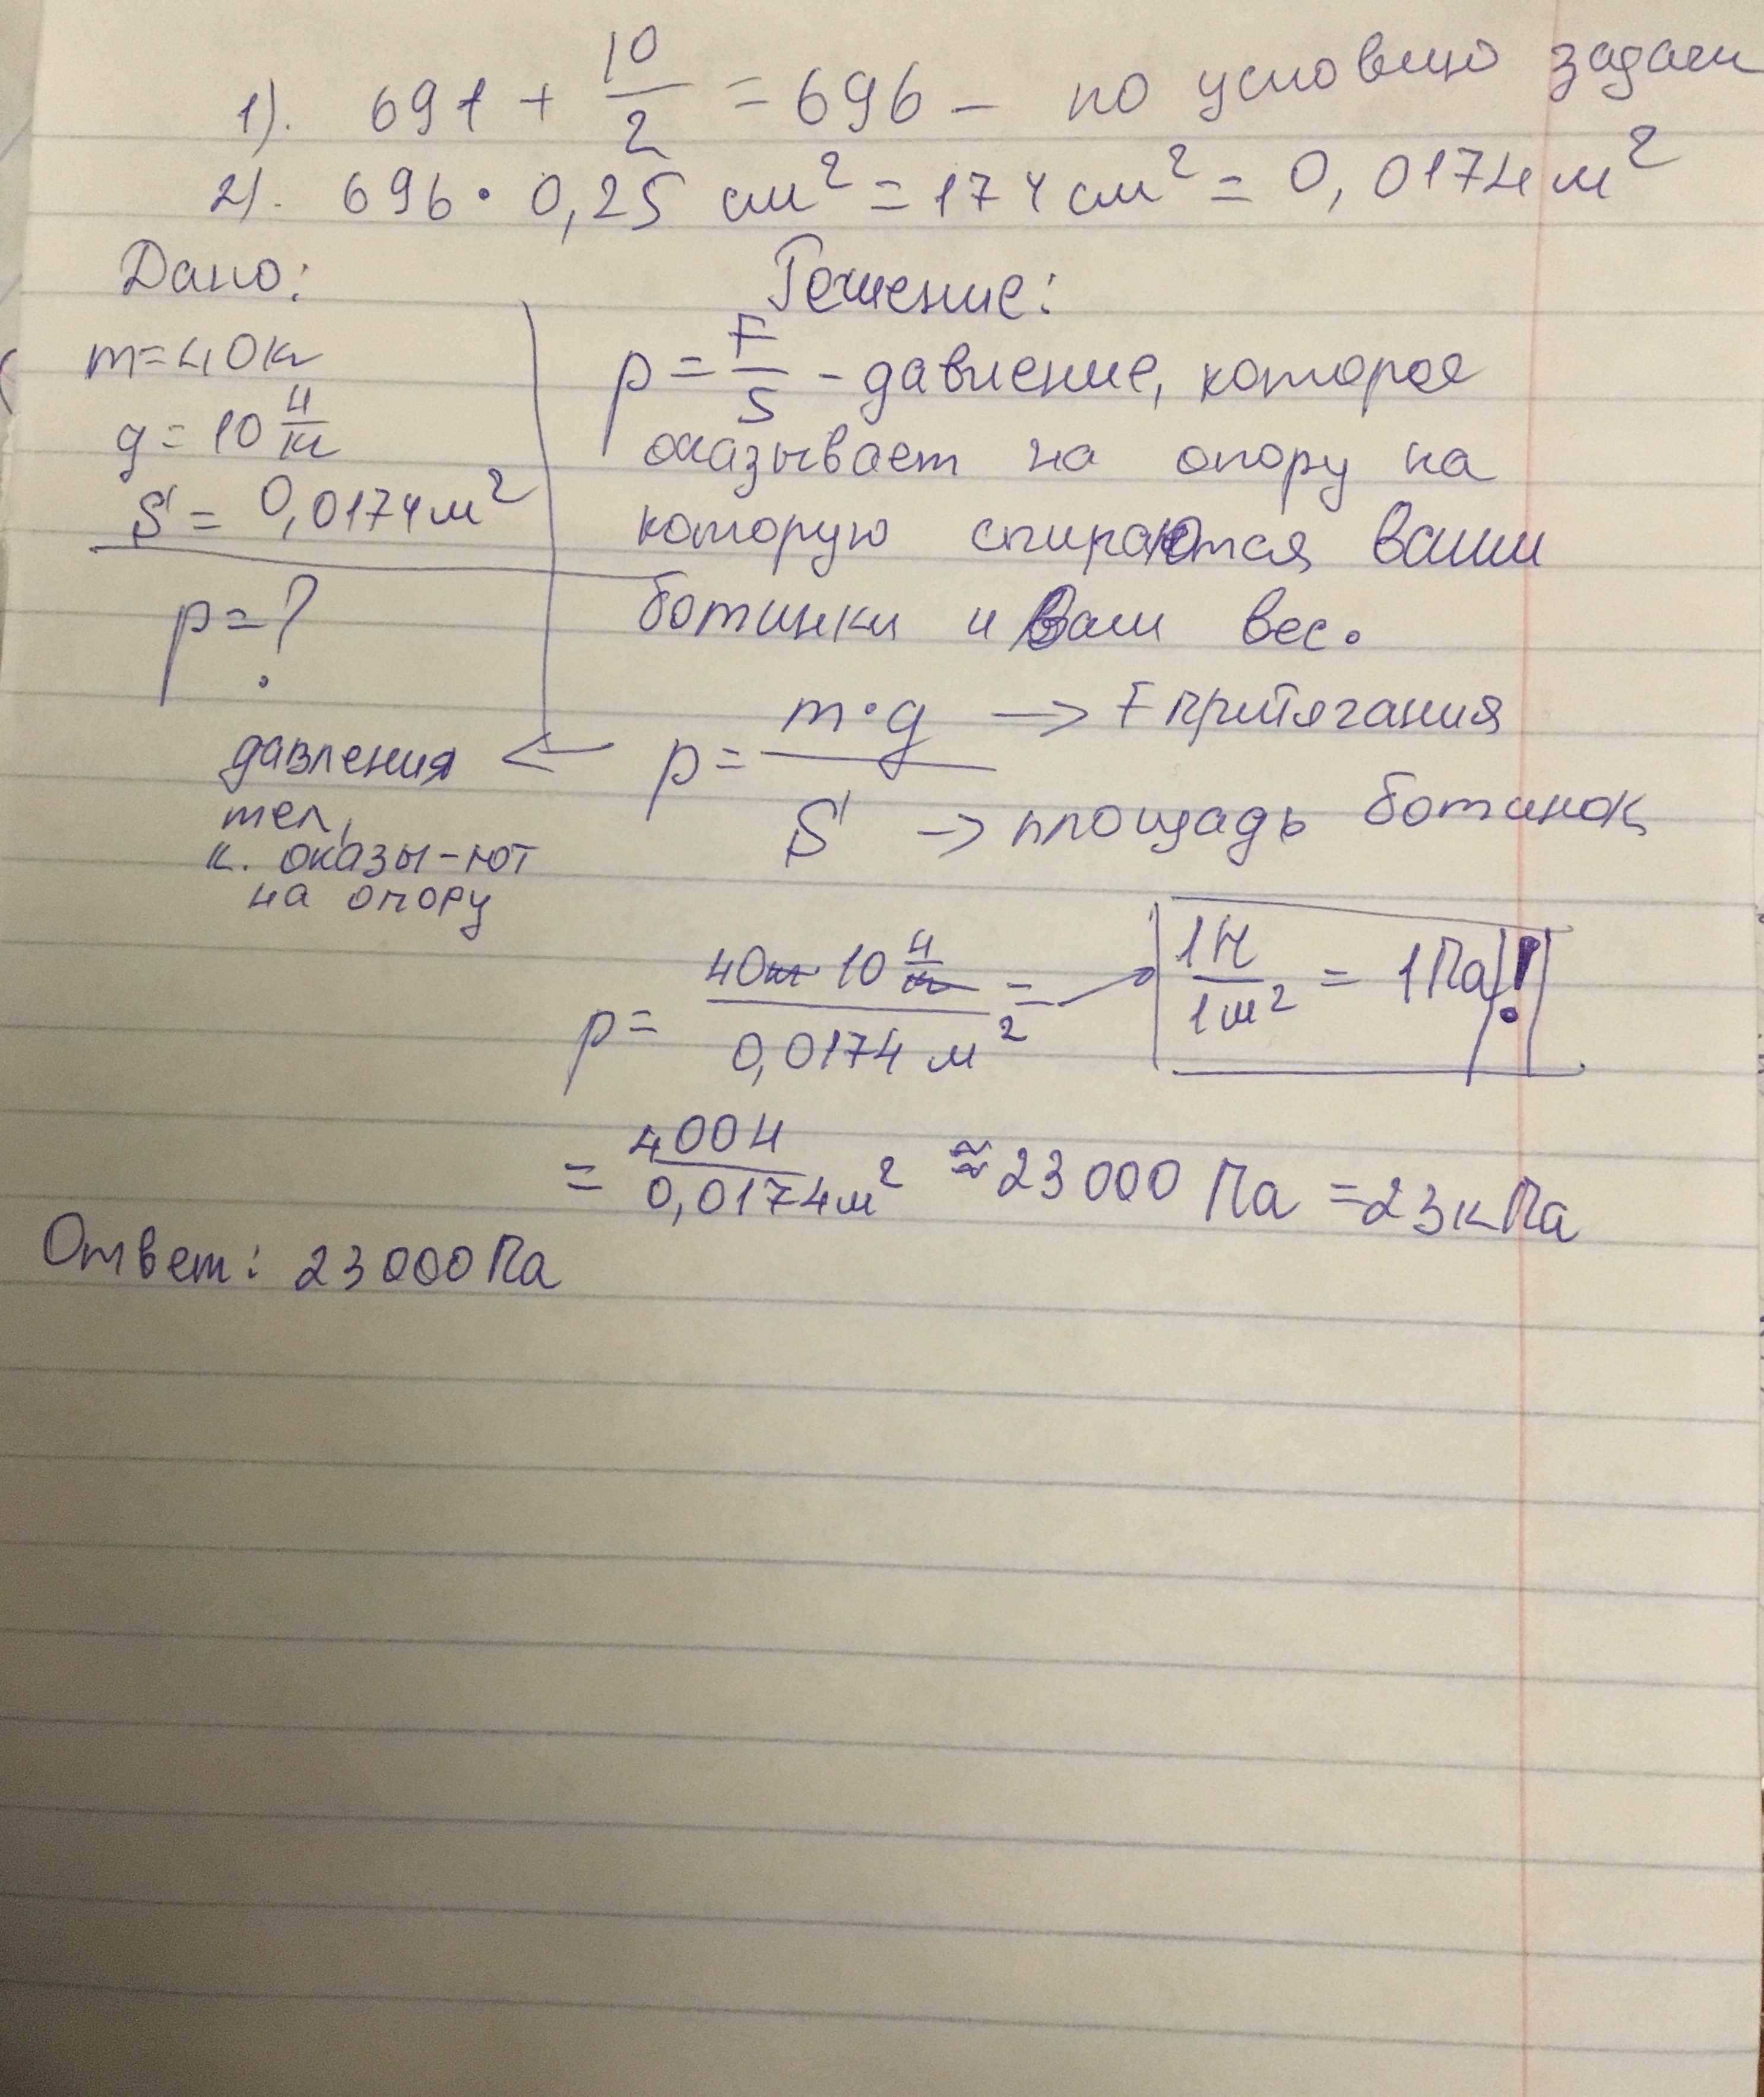 1). 691 + 10/2 = 696 - по условию задачи
2). 696 · 0,25 см² = 174 см² = 0,0174 м²
Дано:
m = 40 кг
g = 10 Н/кг
S = 0,0174 м²
p = ?
Решение:
p = F/S - давление, которое
оказывает на опору на
которую спираются ваши
ботинки и Ваш вес.
p = m·g / S
→ F притягания
→ площадь ботинок
давления ←
тел,
к. оказы-ют
на опору
p = 40кг 10 Н/кг / 0,0174 м² =
1Н/1м² = 1Па!
= 400Н/0,0174м² ≈ 23 000 Па = 23кПа
Ответ: 23 000 Па